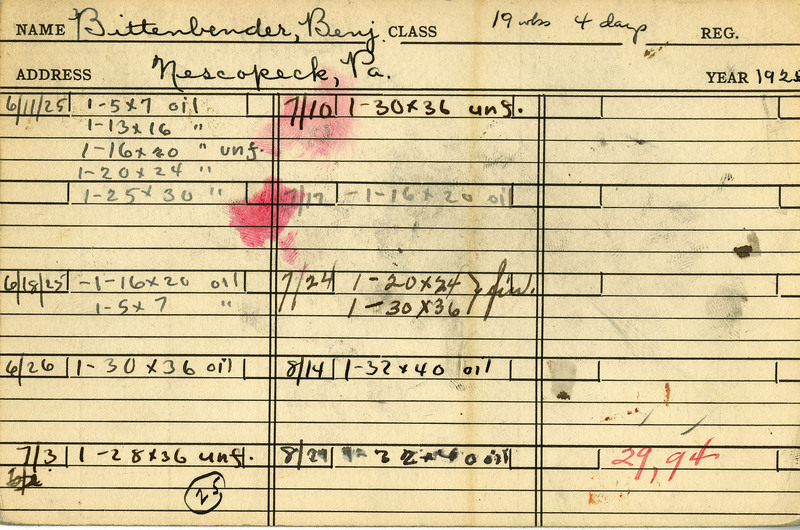 NAME Bittenbender, Benj. CLASS 19 wks 4 days REG.
ADDRESS Nescopeck, Pa. YEAR 1925
6/11/25 1-5x7 oil
1-13x16 "
1-16x20 " unf.
1-20x24 "
1-25x30 "
6/18/25 -1-16x20 oil
1-5x7 "
6/26 1-30x36 oil
7/3 1-28x36 unf.
25
7/10 1-30x36 unf.
7/17 -1-16x20 oil
7/24 1-20x24 } fin.
1-30x36
8/14 1-32x40 oil
8/29 oil
29,94